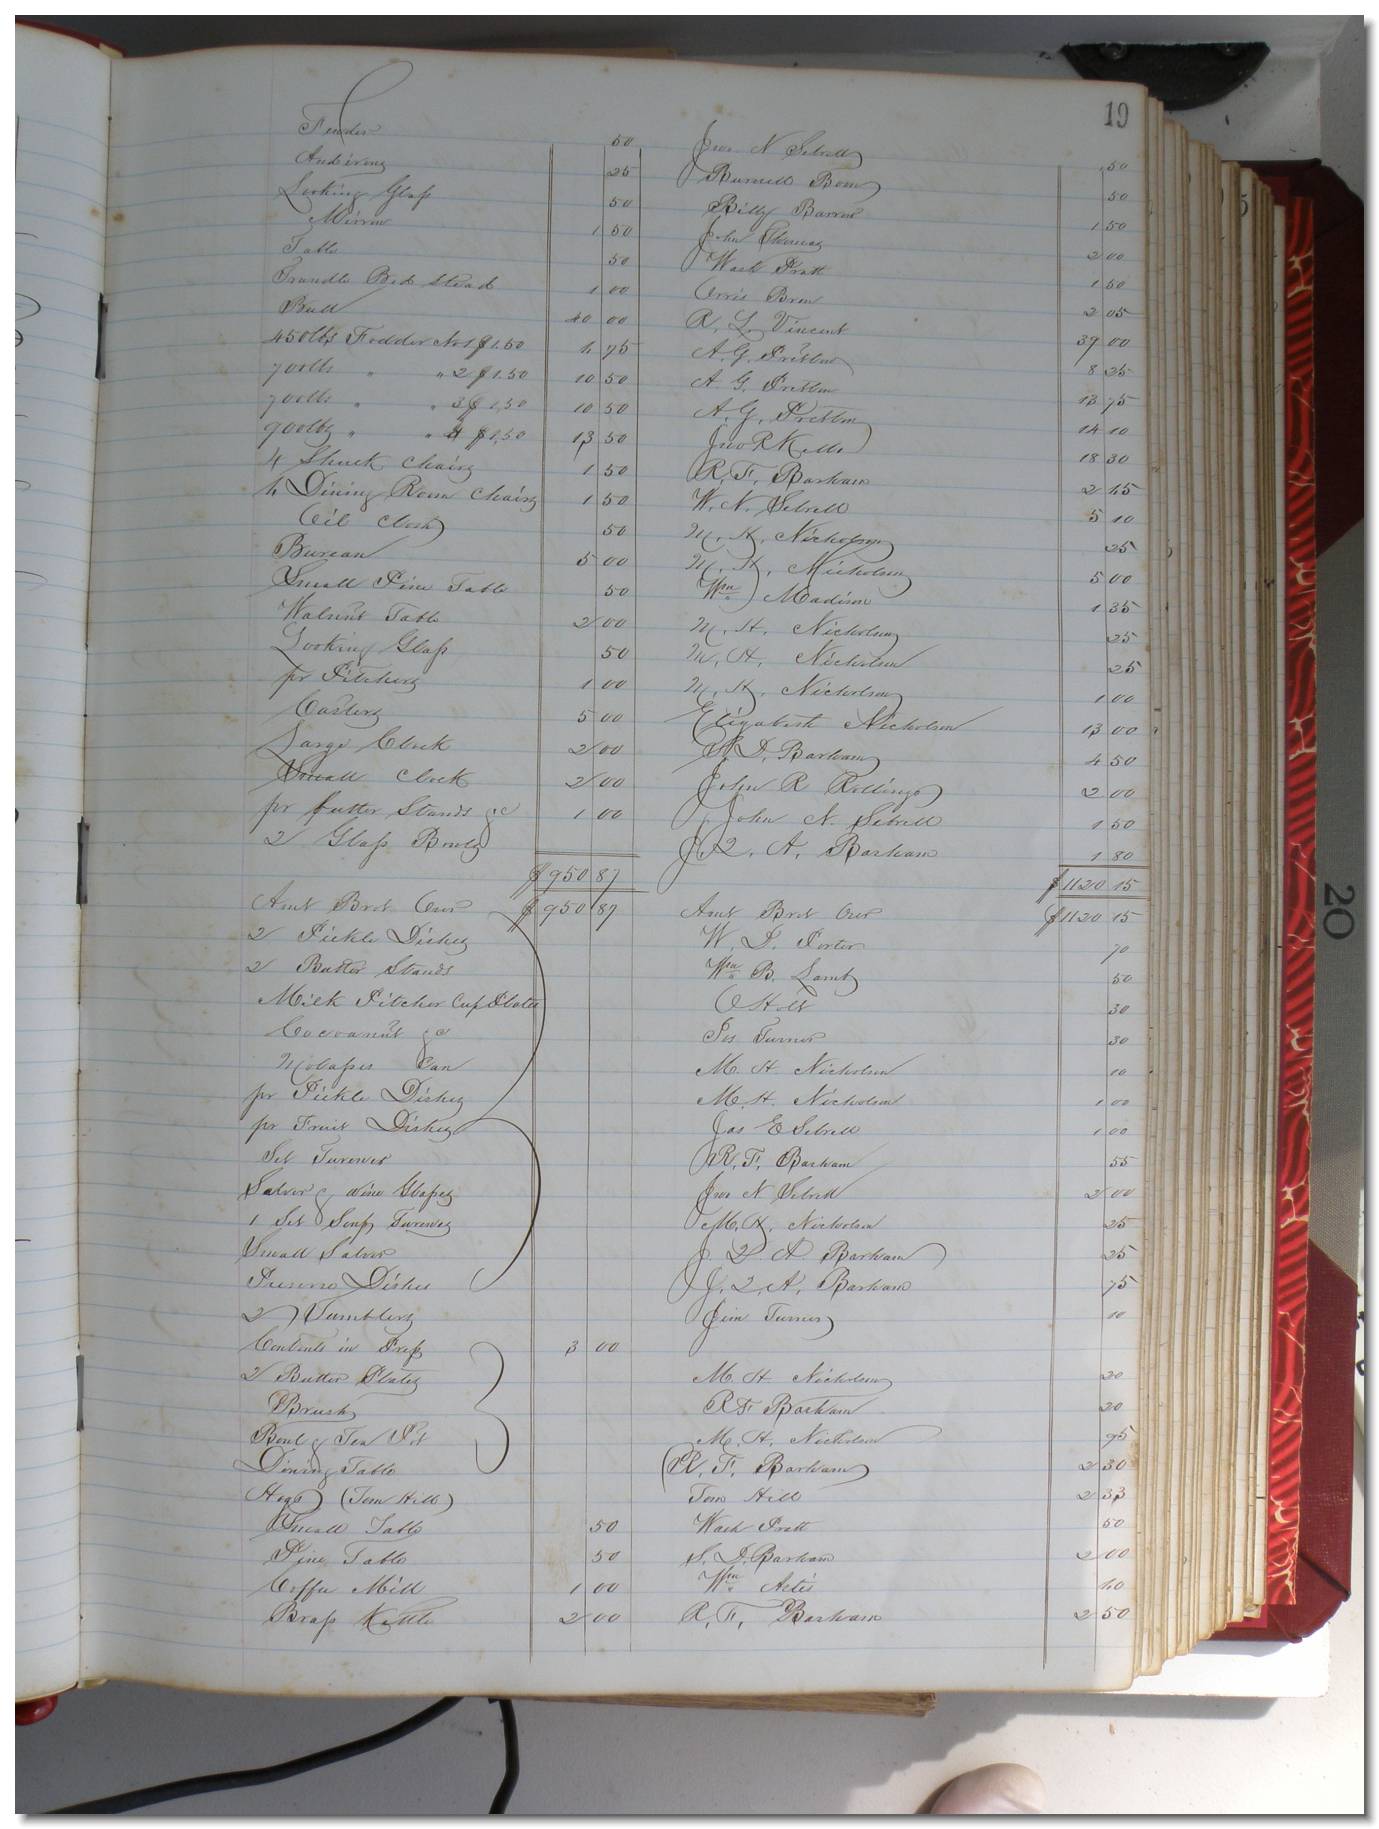 19
Fender 50 Jno N Sebrell 50
Andirons 25 Burwell Boon 50
Looking Glass 50 Billy Barrow 1 50
Mirror 1 50 John Thomas 2 00
Table 50 Wash Pratt 1 50
Trundle Bed Stead 1 00 Orris Brow 2 05
Bull 40 00 R. L. Vincent 39 00
450lbs Fodder No 1 $1.50 6 75 A. G. Pretlow 8 25
700lbs " " 2 $1.50 10 50 A. G. Pretlow 13 75
700lbs " " 3 $1.50 10 50 A. G. Pretlow 14 10
900lbs " " 4 $1.50 13 50 Jno R Kello 18 30
4 Shuck Chairs 1 50 R. F. Barham 2 65
6 Dining Room Chairs 1 50 W. N. Sebrell 5 10
Oil Cloth 50 M. H. Nicholson 25
Bureau 5 00 M. H. Nicholson 5 00
Small Pine Table 50 Wm Madison 1 35
Walnut Table 2 00 M. H. Nicholson 25
Looking Glass 50 M. H. Nicholson 25
pr Pitchers 1 00 M. H. Nicholson 1 00
Castors 5 00 Elizabeth Nicholson 13 00
Large Clock 2 00 S. D. Barham 4 50
Small Clock 2 00 John R Rollings 2 00
pr butter Stands &c 1 00 John N. Sebrell 1 50
2 Glass Bowls J. Q. A. Barham 1 80
$950 87 $1120 15
Amt Brot Over $950 87 Amt Brot Over $1120 15
2 Pickle Dishes W. D. Porter 70
2 Butter Stands Wm B. Lamb 50
Milk Pitcher Cup Plates O Holt 30
Cocoanut &c Jos Turner 30
Molasses Can M. H Nicholson 10
pr Pickle Dishes M. H. Nicholson 1 00
pr Fruit Dishes Jas E Sebrell 1 00
Set Tureens R. F. Barham 55
Salver & wine Glasses Jno N Sebrell 2 00
1 Set Soup Tureens M. H. Nicholson 25
Small Salver J. Q. A. Barham 25
Preserve Dishes J. Q. A. Barham 75
2 Tumblers Jim Turner 10
Contents in Press 3 00
2 Butter Plates M. H Nicholson 20
Brush R F Barham 20
Bowl & Tea Pot M. H. Nicholson 95
Dining Table R. F. Barham 2 30
Hogs (Tom Hill) Tom Hill 2 33
Small Table 50 Wash Pratt 50
Pine Table 50 S. D. Barham 2 00
Coffee Mill 1 00 Wm Artis 60
Brass Kettle 2 00 R. F. Barham 2 50
20